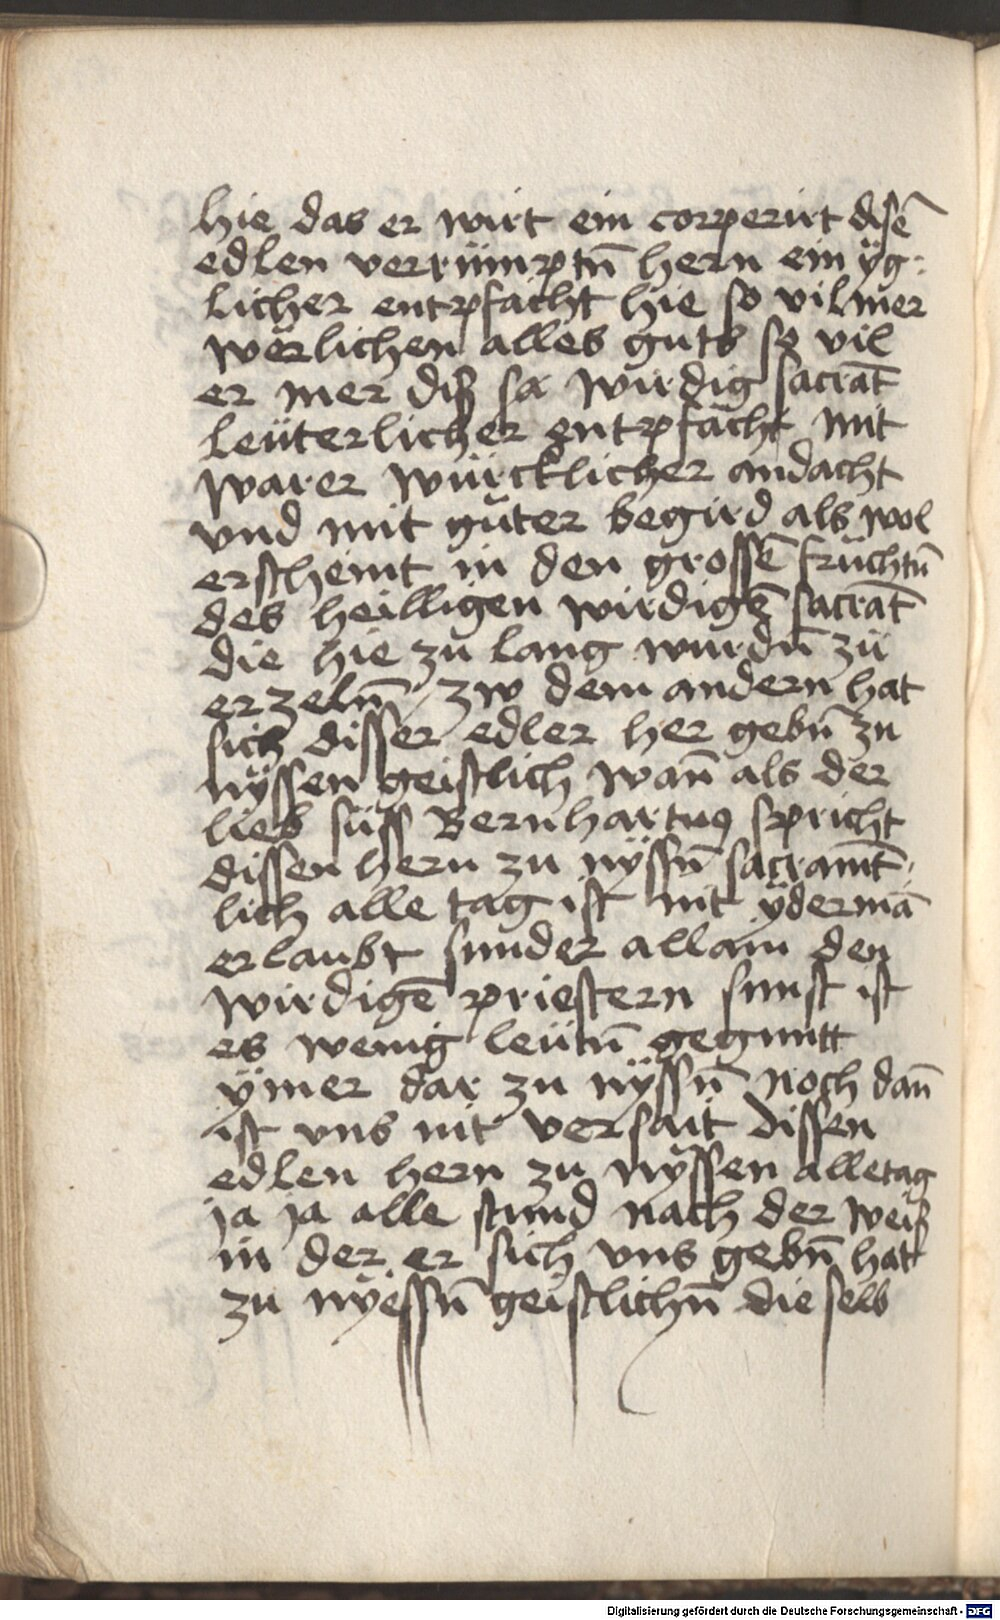 hie das er wirt ein corperirt disē
edlen verrümptn̄ hern ein ÿg-
licher entpfächt hie so vil mer
werlichen alles guts so vil
er mer diß sa wirdig sacrat̄
leüterlicher entpfächt mit
warer würcklicher andacht
vnd mit guter begird als wol
erscheint in den grossē früchtn̄
des heilligen wirdigē sacrat̄
die hie zu lang wurdn̄ zu
erzeln̄ / zw dem andern hat
sich disser edler her gebn̄ zu
nÿssen geistlich wan̄ als der
lieb süss Bernhartus spricht
dissen hern zu nÿssn̄ sacramt̄-
lich alle tag ist nit ÿdermā
erlaubt sunder allain den
wirdigē priestern sunst ist
es wenig leütn̄ geguntt
ÿmer dar zu nÿssn̄ noch dan̄
ist vns nit versait dissen
edlen hern zu nÿssen alletag
ja ja alle stund nach der weiß
in der er sich vns gebn̄ hatt
zu nÿessn̄ geistlichn̄ die selb
Digitalisierung gefördert durch die Deutsche Forschungsgemeinschaft - DFG